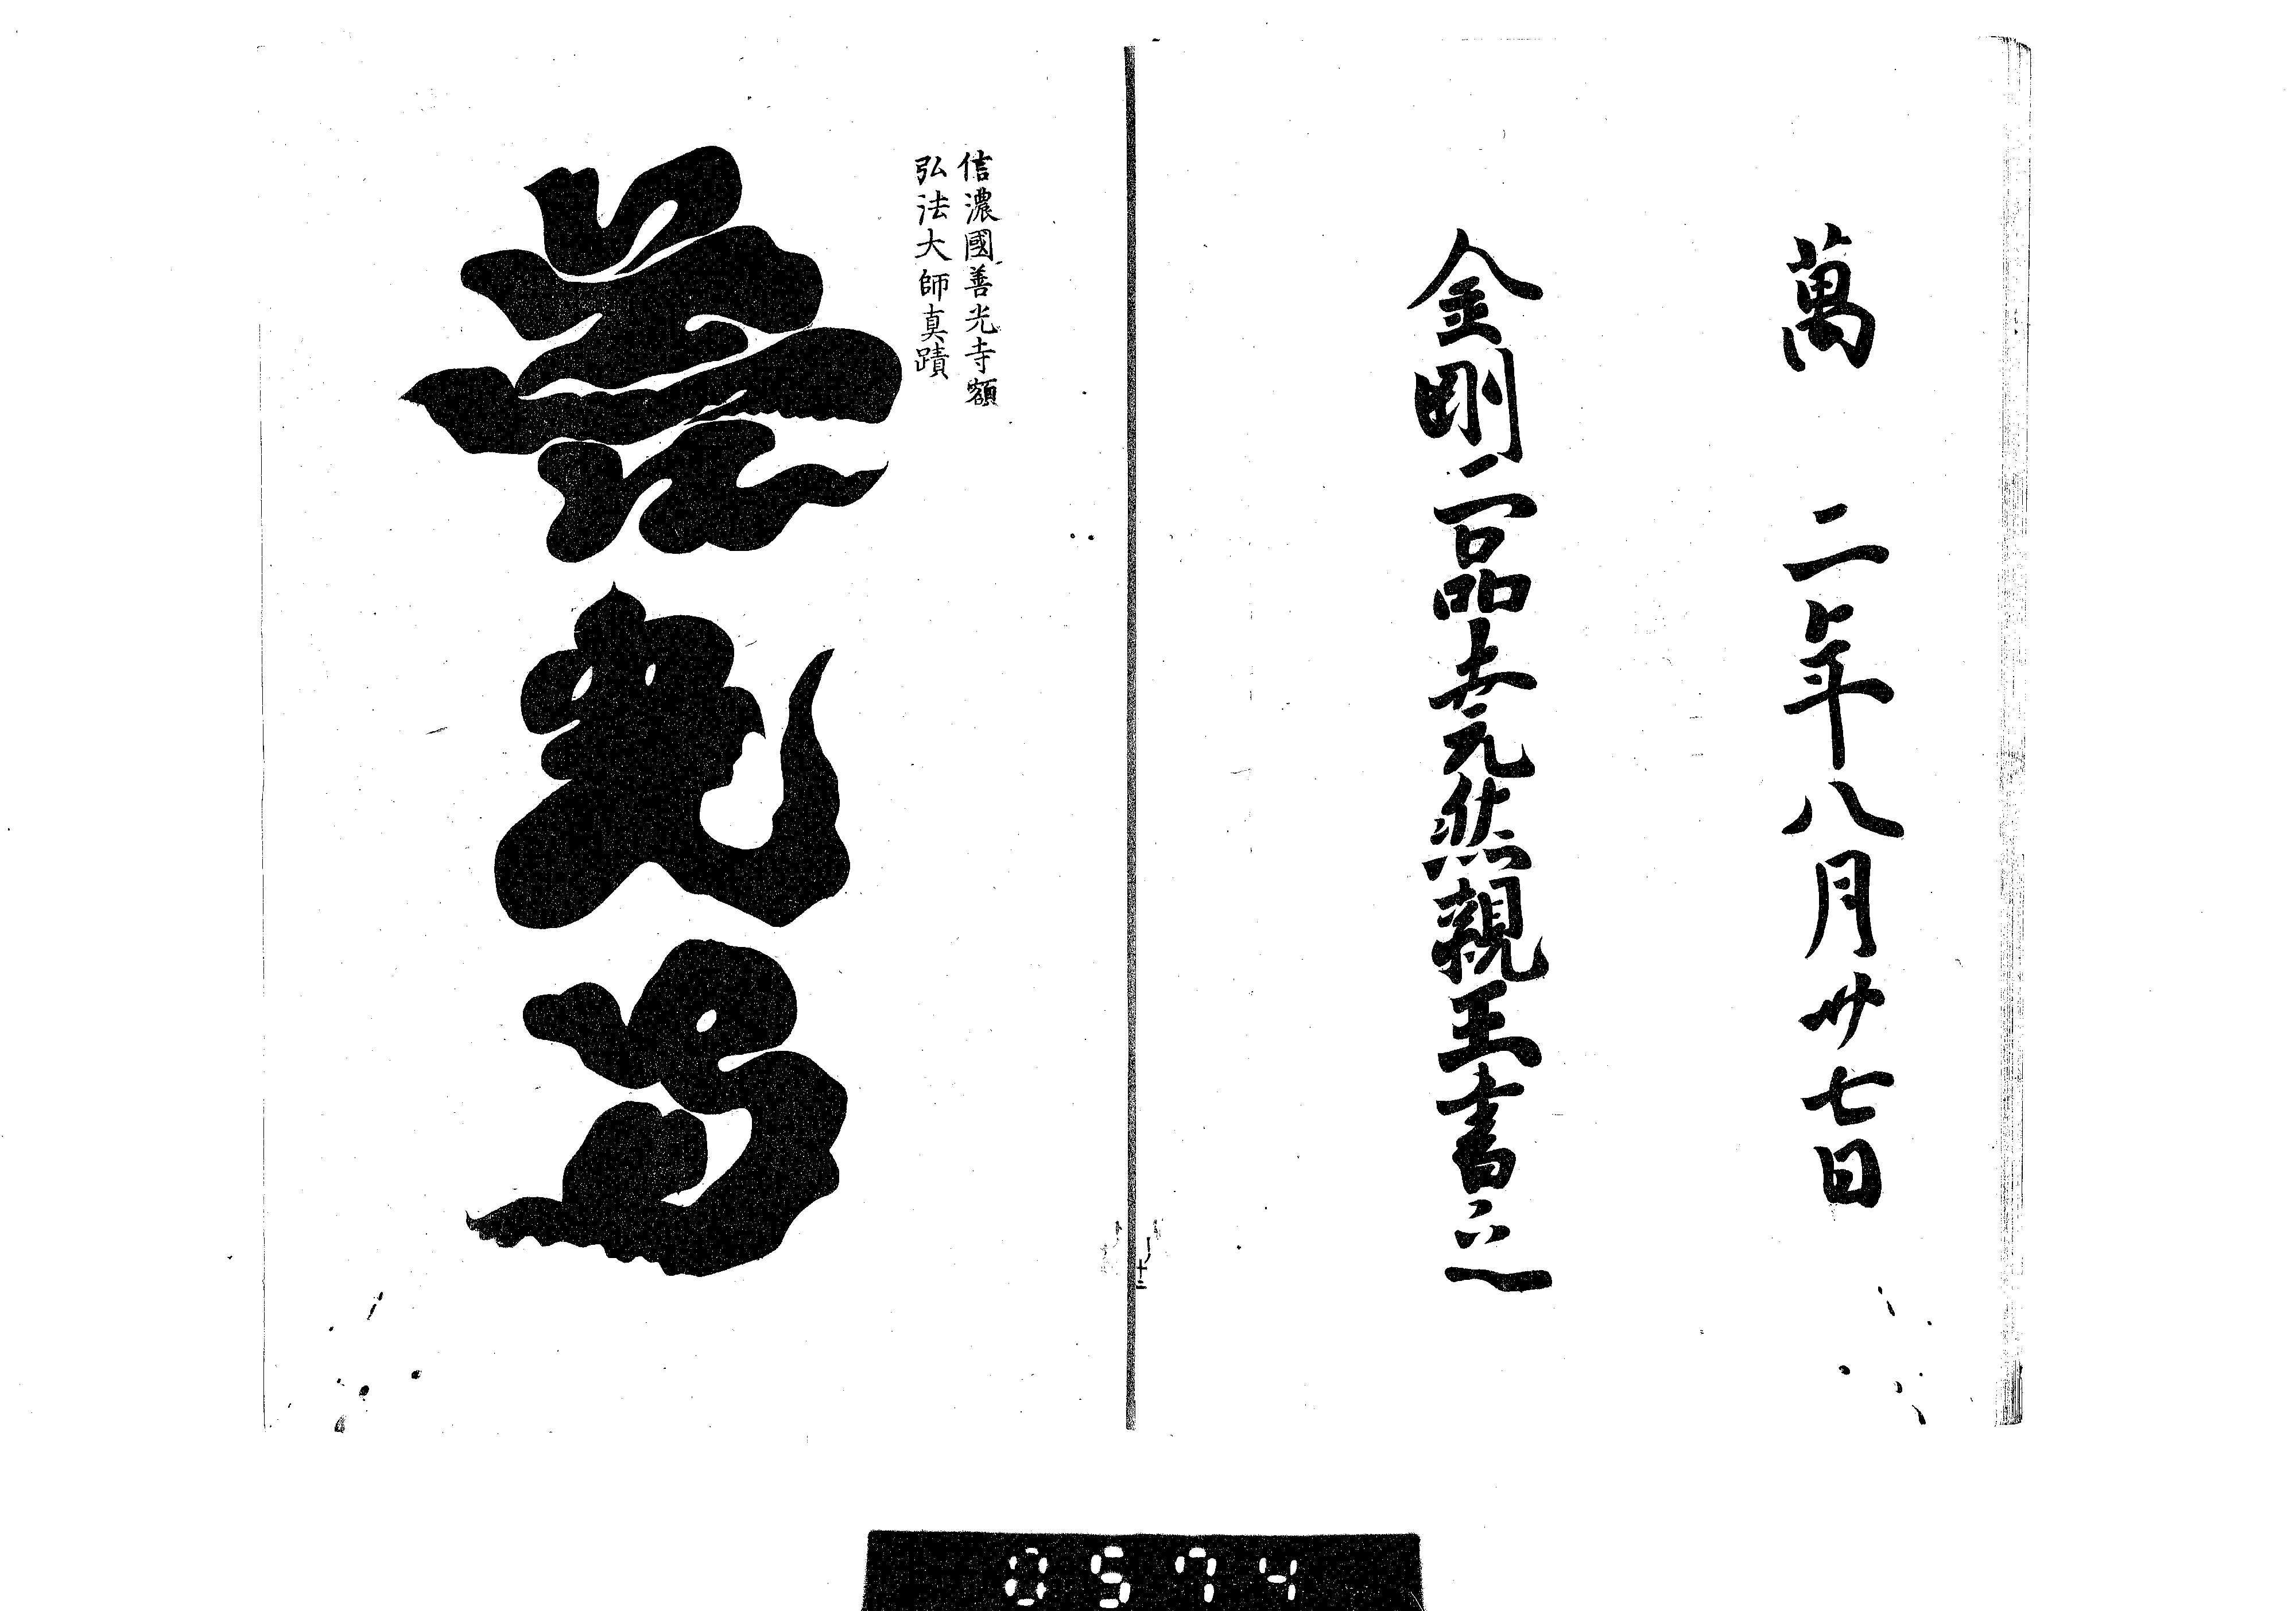 萬 二年八月廿七日
金剛二品堯然親王書之
信濃國善光寺額
弘法大師真蹟
善光寺
十二
0574